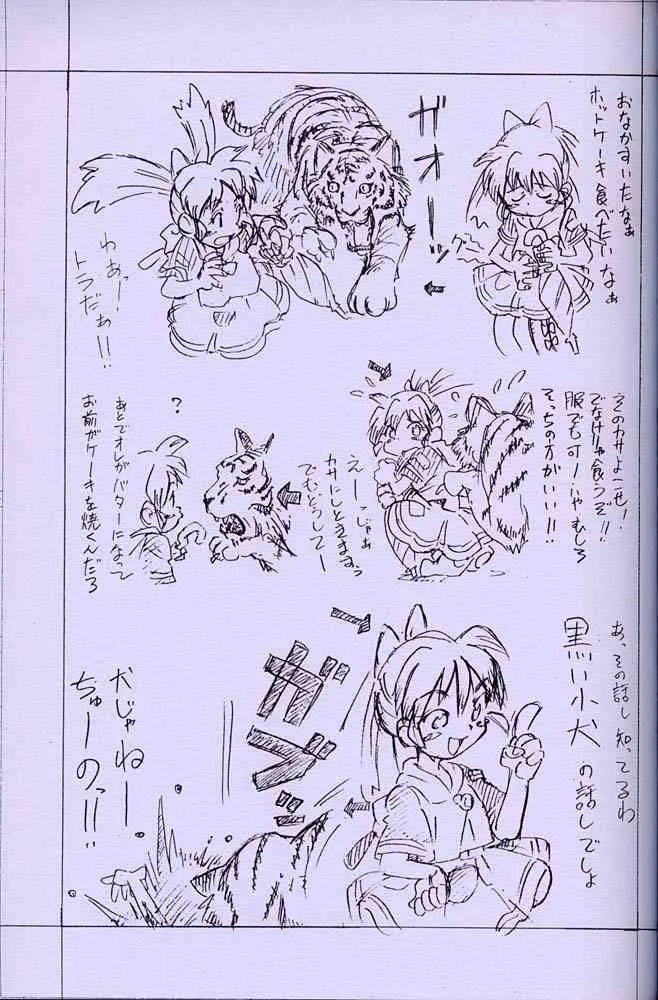 おなかすいたなぁ
ホットケーキ食べたいなぁ
グ〜
ガオーッ
わぁっー!
トラだぁ!!
そのカサよこせ!
でなけりゃ食うぞ!!
服でも可!いやむしろ
そっちの方がいい!!
えーっじゃぁ
カサにしときますぅ
でもどうしてー
?
あとでオレがバターになって
お前がケーキを焼くんだろ
あ、その話し知ってるわ
黒い小犬の話しでしょ
ガブッ
犬じゃねー
ちゅーのっ!!